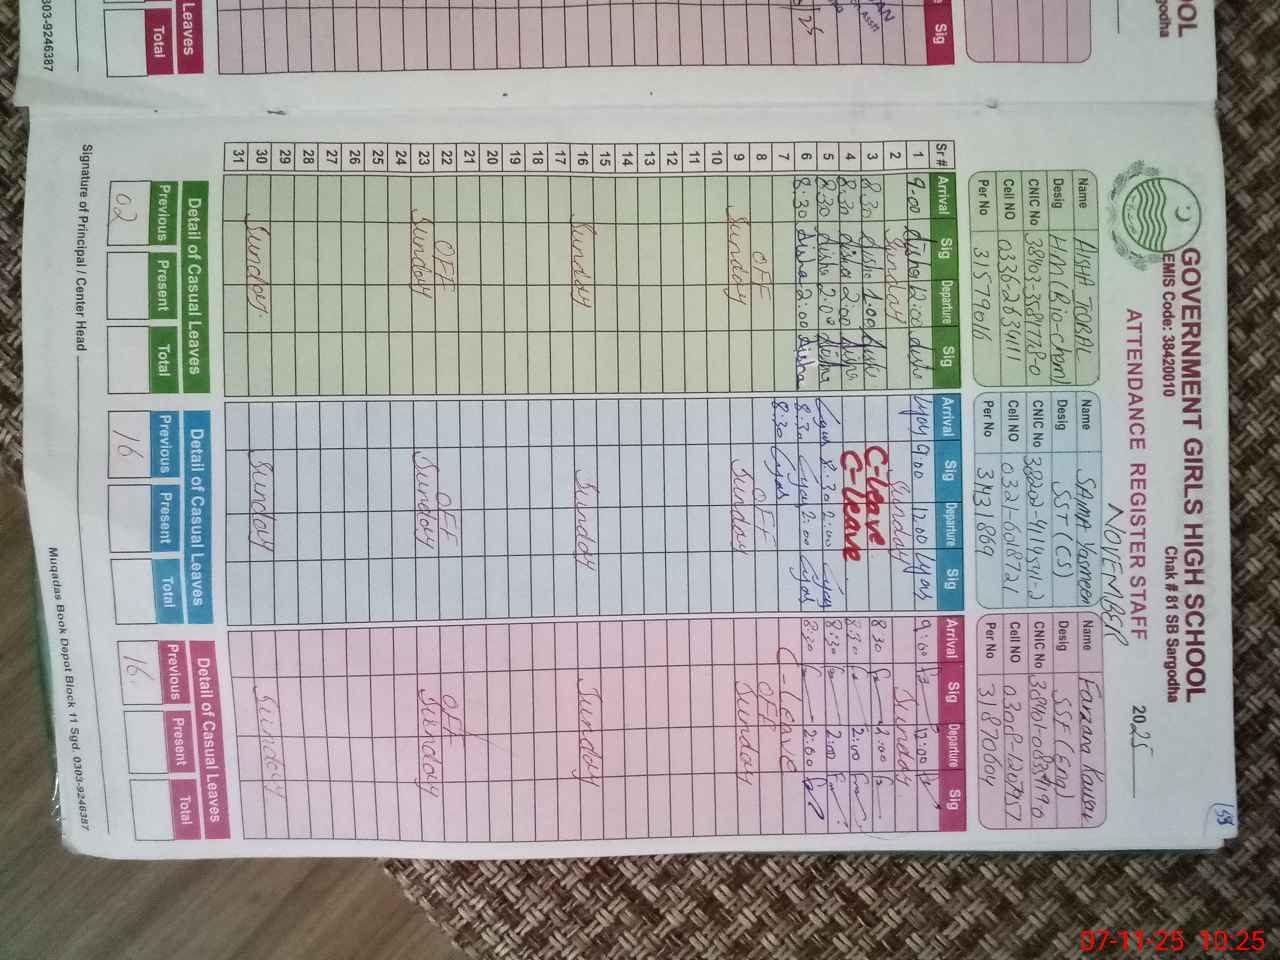 GOVERNMENT GIRLS HIGH SCHOOL
EMIS Code: 38420010
Chak # 81 SB Sargodha
ATTENDANCE REGISTER STAFF
NOVEMBER
2025
Name AISHA IQBAL
Desig HM (Bio-chem)
CNIC No
Cell NO 0336-2634111
Per No 31579016
Name SAMA Yasmeen
Desig SST (CS)
CNIC No
Cell NO 0321-6018721
Per No 31431869
Name Farzana Kausar
Desig SST (Eng)
CNIC No
Cell NO
Per No 31870604
Sr # Arrival Sig Departure Sig Arrival Sig Departure Sig Arrival Sig Departure Sig
1 9-00 Aisha 12:00 Aisha 9:00 12:00 9:00 12:00
2 Sunday Sunday Sunday
3 8:30 Aisha 2:00 Aisha C-leave 8:30 2:00
4 8:30 Aisha 2:00 Aisha C-leave 8:30 2:00
5 8:30 Aisha 2:00 Aisha 8:30 2:00 8:30 2:00
6 8:30 Aisha 2:00 Aisha 8:30 2:00 8:30 2:00
7 8:30 C-Leave
8 OFF OFF OFF
9 Sunday Sunday Sunday
10
11
12
13
14
15
16 Sunday Sunday Sunday
17
18
19
20
21
22 OFF OFF OFF
23 Sunday Sunday Sunday
24
25
26
27
28
29
30 Sunday Sunday Sunday
31
Detail of Casual Leaves
Previous Present Total
02
Detail of Casual Leaves
Previous Present Total
16
Detail of Casual Leaves
Previous Present Total
16
Signature of Principal / Center Head
Muqadas Book Depot Block 11 Sgd. 0303-9246387
Sig
Leaves
Total
303-9246387
OOL
rgodha
07-11-25 10:25